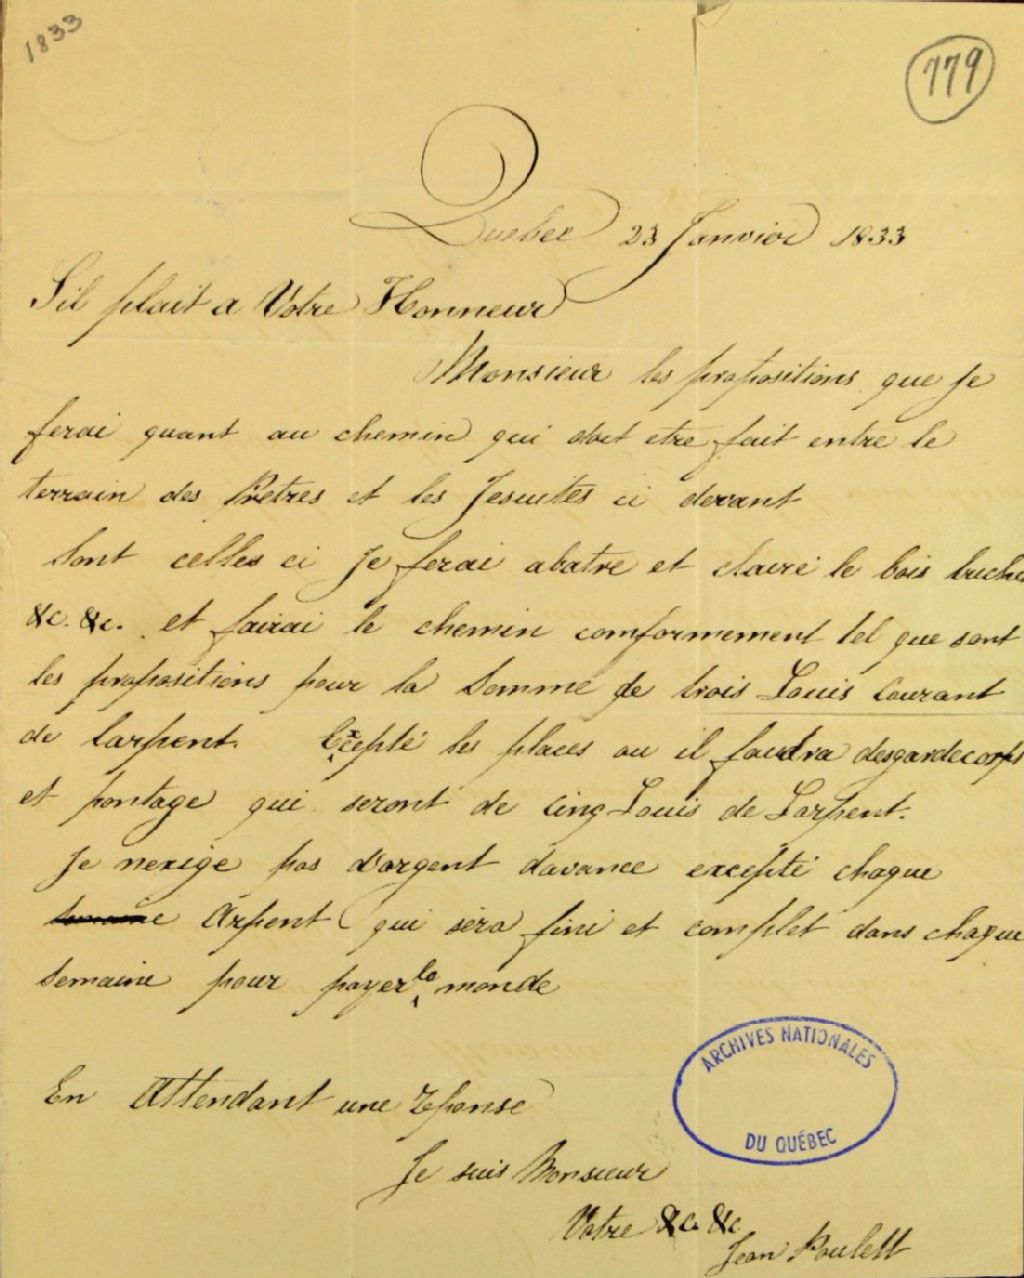 1833
779
Quebec 23 Janvier 1833
S'il plait a Votre Honneur
Monsieur les propositions que je
ferai quant au chemin qui doit etre fait entre le
terrain des Prêtres et les Jesuites ci devant
Sont celles ci Je ferai abatre et clairé le bois buches
&c. &c. et fairai le chemin comformement tel que sont
les propositions pour la Somme de trois Louis Courant
de Larpent. Excepté les places ou il faudra desgardecorps
et pontage qui seront de Cinq Louis de Larpent.
Je nexige pas d'argent davance excepté chaque
semaine Arpent qui sera fini et complet dans chaque
Semaine pour payer le monde
En Attendant une Reponse
Je suis Monsieur
Votre &c. &c
Jean Poulett
ARCHIVES NATIONALES
DU QUÉBEC